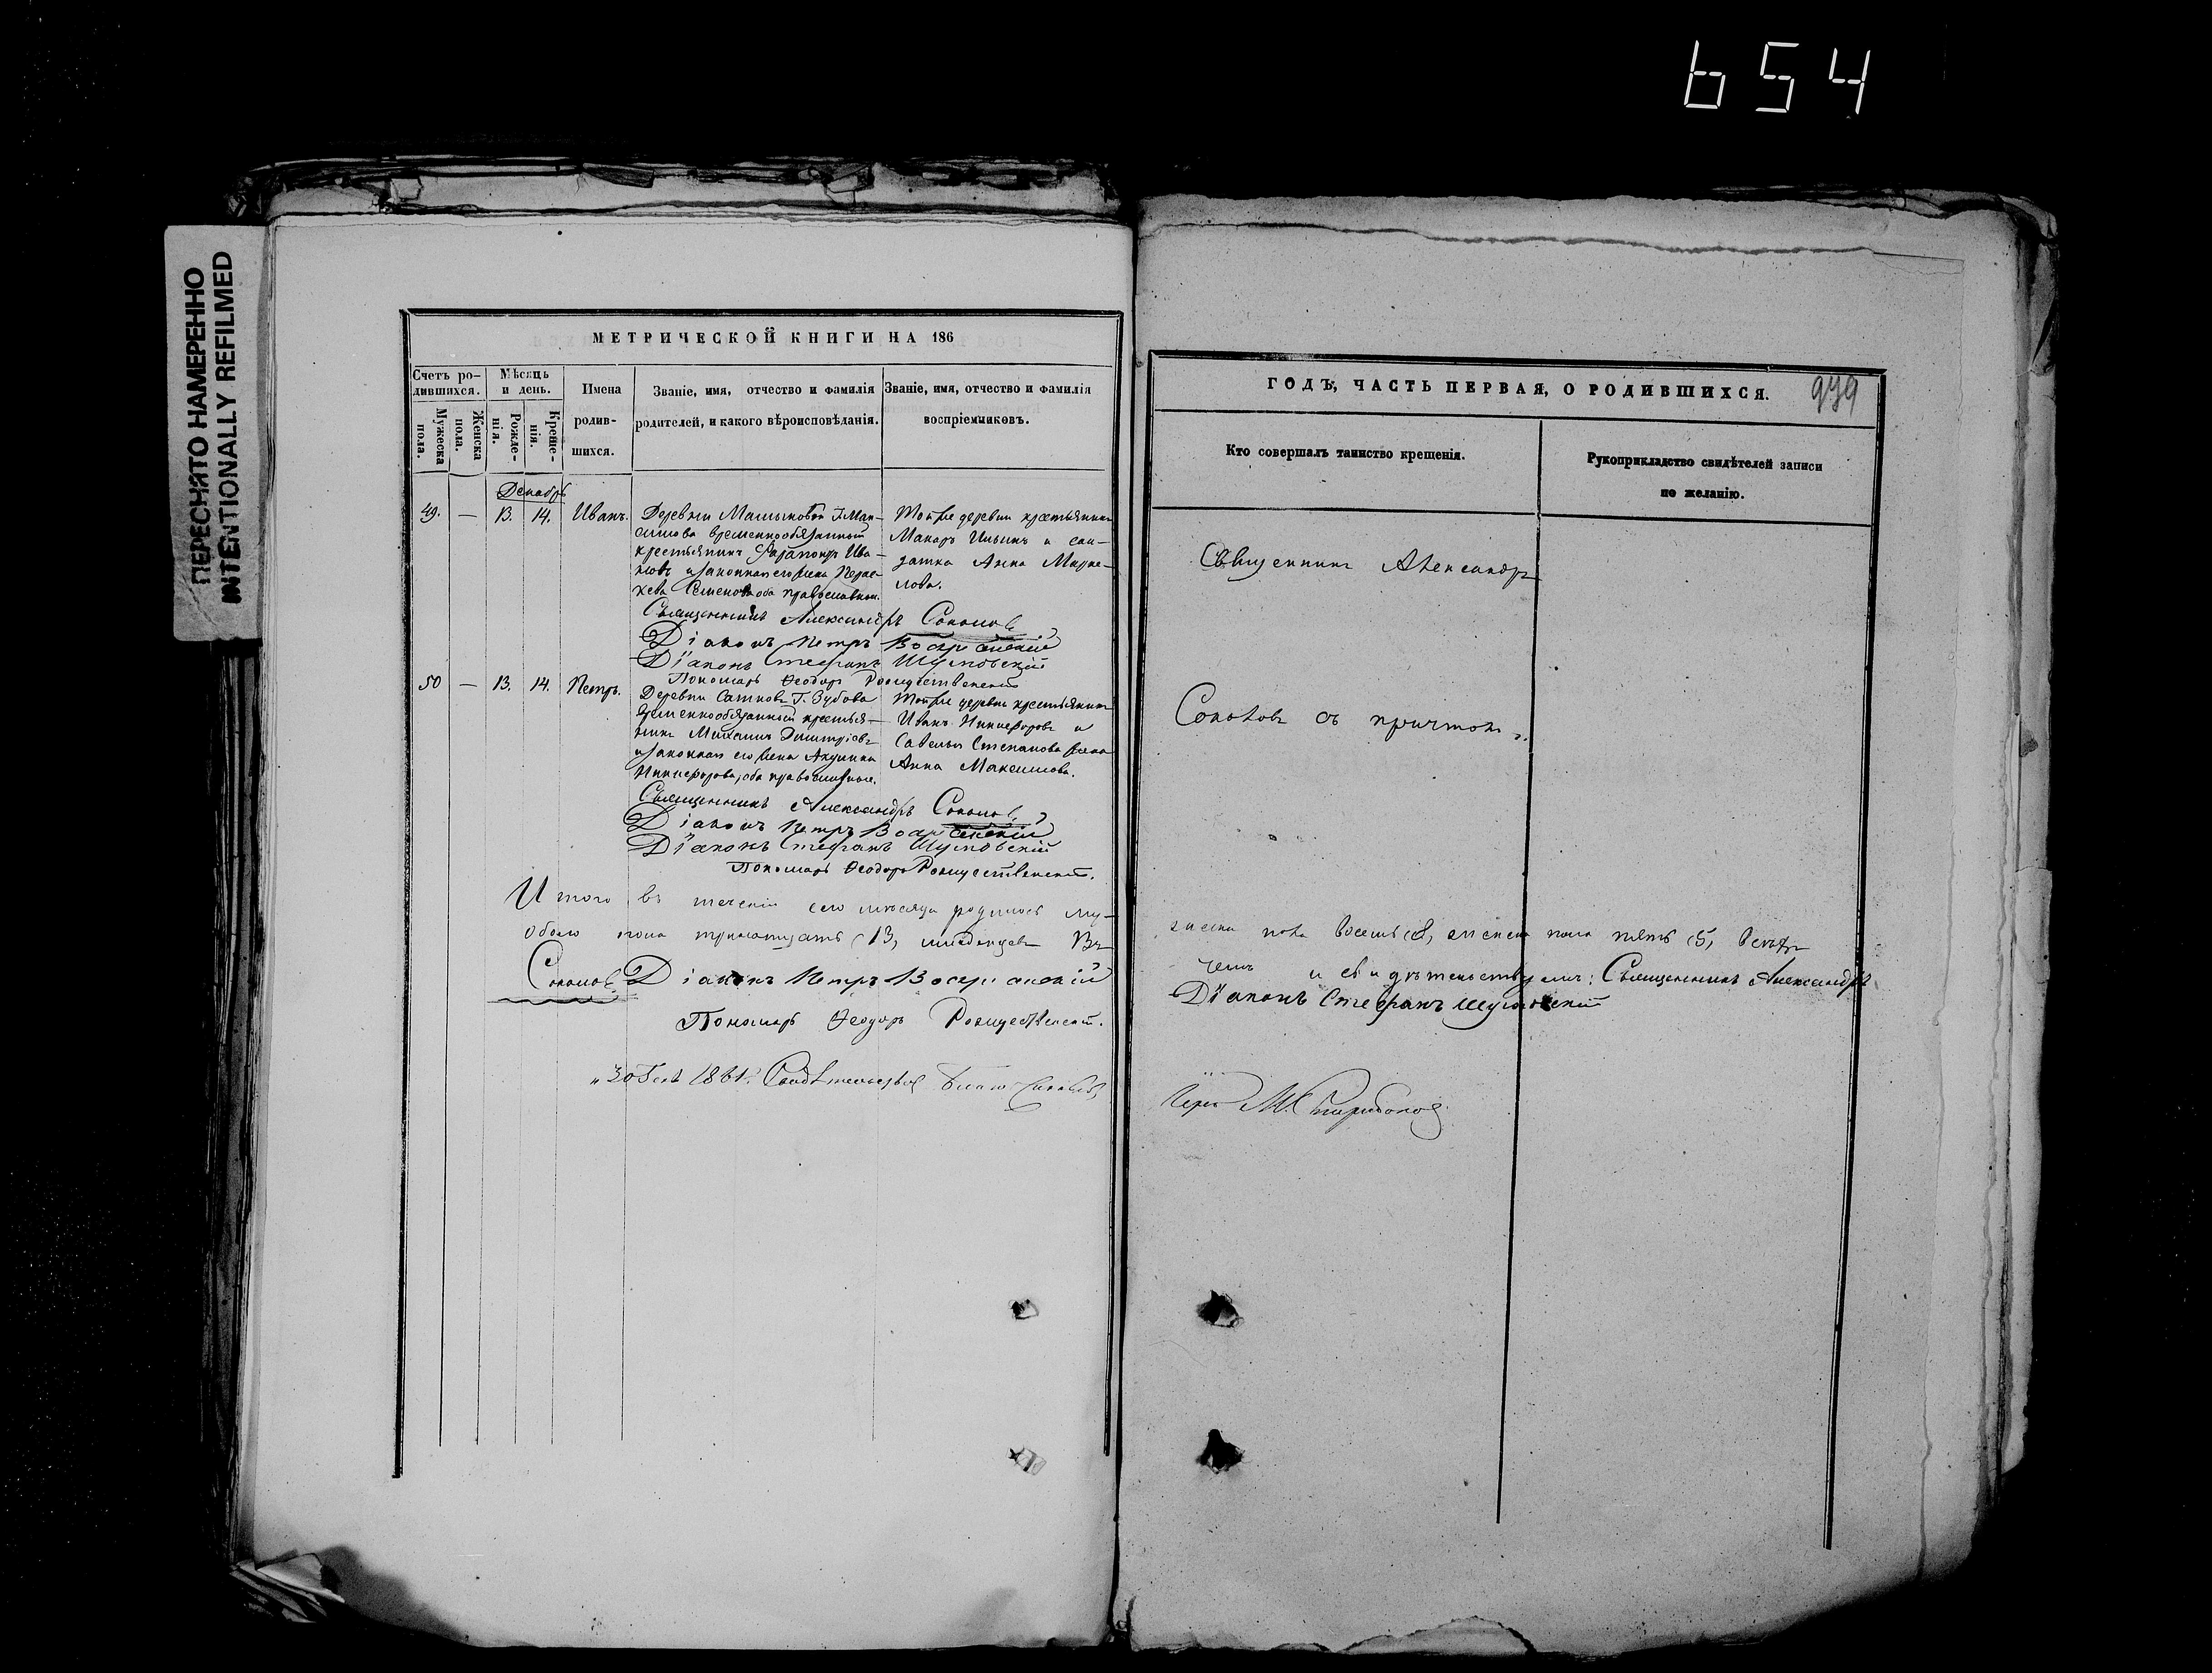 654
ПЕРЕСНЯТО НАМЕРЕННО
INTENTIONALLY REFILMED
МЕТРИЧЕСКОЙ КНИГИ НА 186
Счетъ ро-
дившихся.
Мужеска пола.
Женска пола.
Мѣсяць
и день.
Рожде-
нія.
Креще-
нія.
Имена
родив-
шихся.
Званіе, имя, отчество и фамилія
родителей, и какого вѣроисповѣданія.
Званіе, имя, отчество и фамилія
воспріемниковъ.
Декабрь
49. — 13. 14. Иванъ.
Деревни Г. Мак-
симова временнообязанный
крестьянинъ Ива-
новъ и законная его жена Парас-
кева Семенова оба православные.
Тойже деревни крестьянинъ
Макаръ Ильинъ и сол-
датка Анна Марке-
лова.
Священникъ Александръ Соколовъ
Діаконъ Петръ
Діаконъ Стефанъ Шумовскій
Пономарь Ѳеодоръ Рождественскій
50 — 13. 14. Петръ.
Деревни Г. Зубова
временнообязанный крестья-
нинъ Михаилъ Димитріевъ
и законная его жена Акулина
Никифорова, оба православные.
Тойже деревни крестьянинъ
Иванъ Никифоровъ и
Савелья Степанова жена
Анна Максимова.
Священникъ Александръ Соколовъ
Діаконъ Петръ
Діаконъ Стефанъ Шумовскій
Пономарь Ѳеодоръ Рождественскій.
Итого въ теченіи сего мѣсяца родилось му-
обоего пола тринатцать (13) младенцевъ Въ
Соколовъ Діаконъ Петръ
Пономарь Ѳеодоръ Рождественскій.
1861
ГОДЪ, ЧАСТЬ ПЕРВАЯ, О РОДИВШИХСЯ.
939
Кто совершалъ таинство крещенія.
Рукоприкладство свидѣтелей записи
по желанію.
Священникъ Александръ
Соколовъ съ причтомъ.
жеска пола восемь (8), женска пола пять (5),
чемъ и свидѣтельствуемъ: Священникъ Александръ
Діаконъ Стефанъ Шумовскій
М. Спиридоновъ